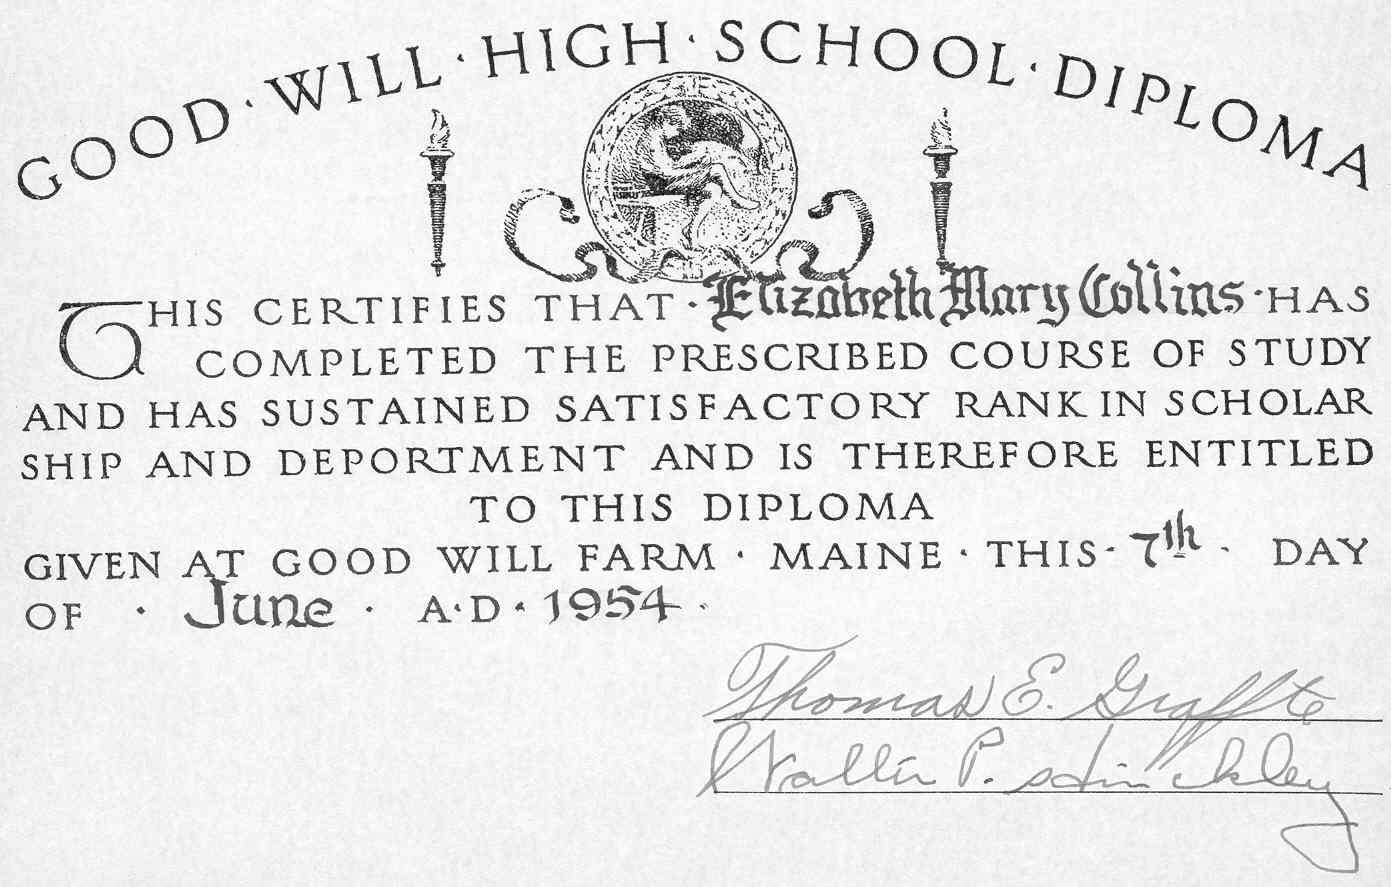 GOOD · WILL · HIGH · SCHOOL · DIPLOMA
THIS CERTIFIES THAT · Elizabeth Mary Collins · HAS
COMPLETED THE PRESCRIBED COURSE OF STUDY
AND HAS SUSTAINED SATISFACTORY RANK IN SCHOLAR
SHIP AND DEPORTMENT AND IS THEREFORE ENTITLED
TO THIS DIPLOMA
GIVEN AT GOOD WILL FARM · MAINE · THIS · 7th · DAY
OF · June · A·D· 1954 ·
Thomas E.
Walter P. Hinckley